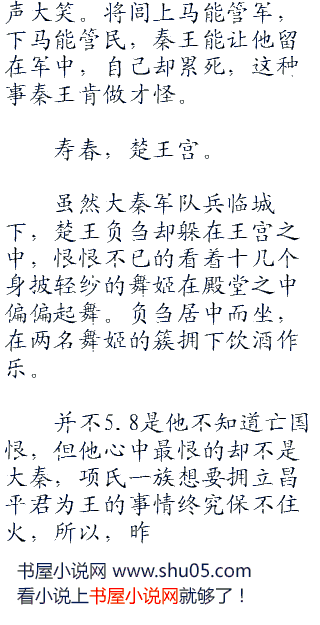 声大笑。将闾上马能管军，
下马能管民，秦王能让他留
在军中，自己却累死，这种
事秦王肯做才怪。
寿春，楚王宫。
虽然大秦军队兵临城
下，楚王负刍却躲在王宫之
中，恨恨不已的看着十几个
身披轻纱的舞姬在殿堂之中
偏偏起舞。负刍居中而坐，
在两名舞姬的簇拥下饮酒作
乐。
并不5.8是他不知道亡国
恨，但他心中最恨的却不是
大秦，项氏一族想要拥立昌
平君为王的事情终究保不住
火，所以，昨
书屋小说网 www.shu05.com
看小说上书屋小说网就够了！